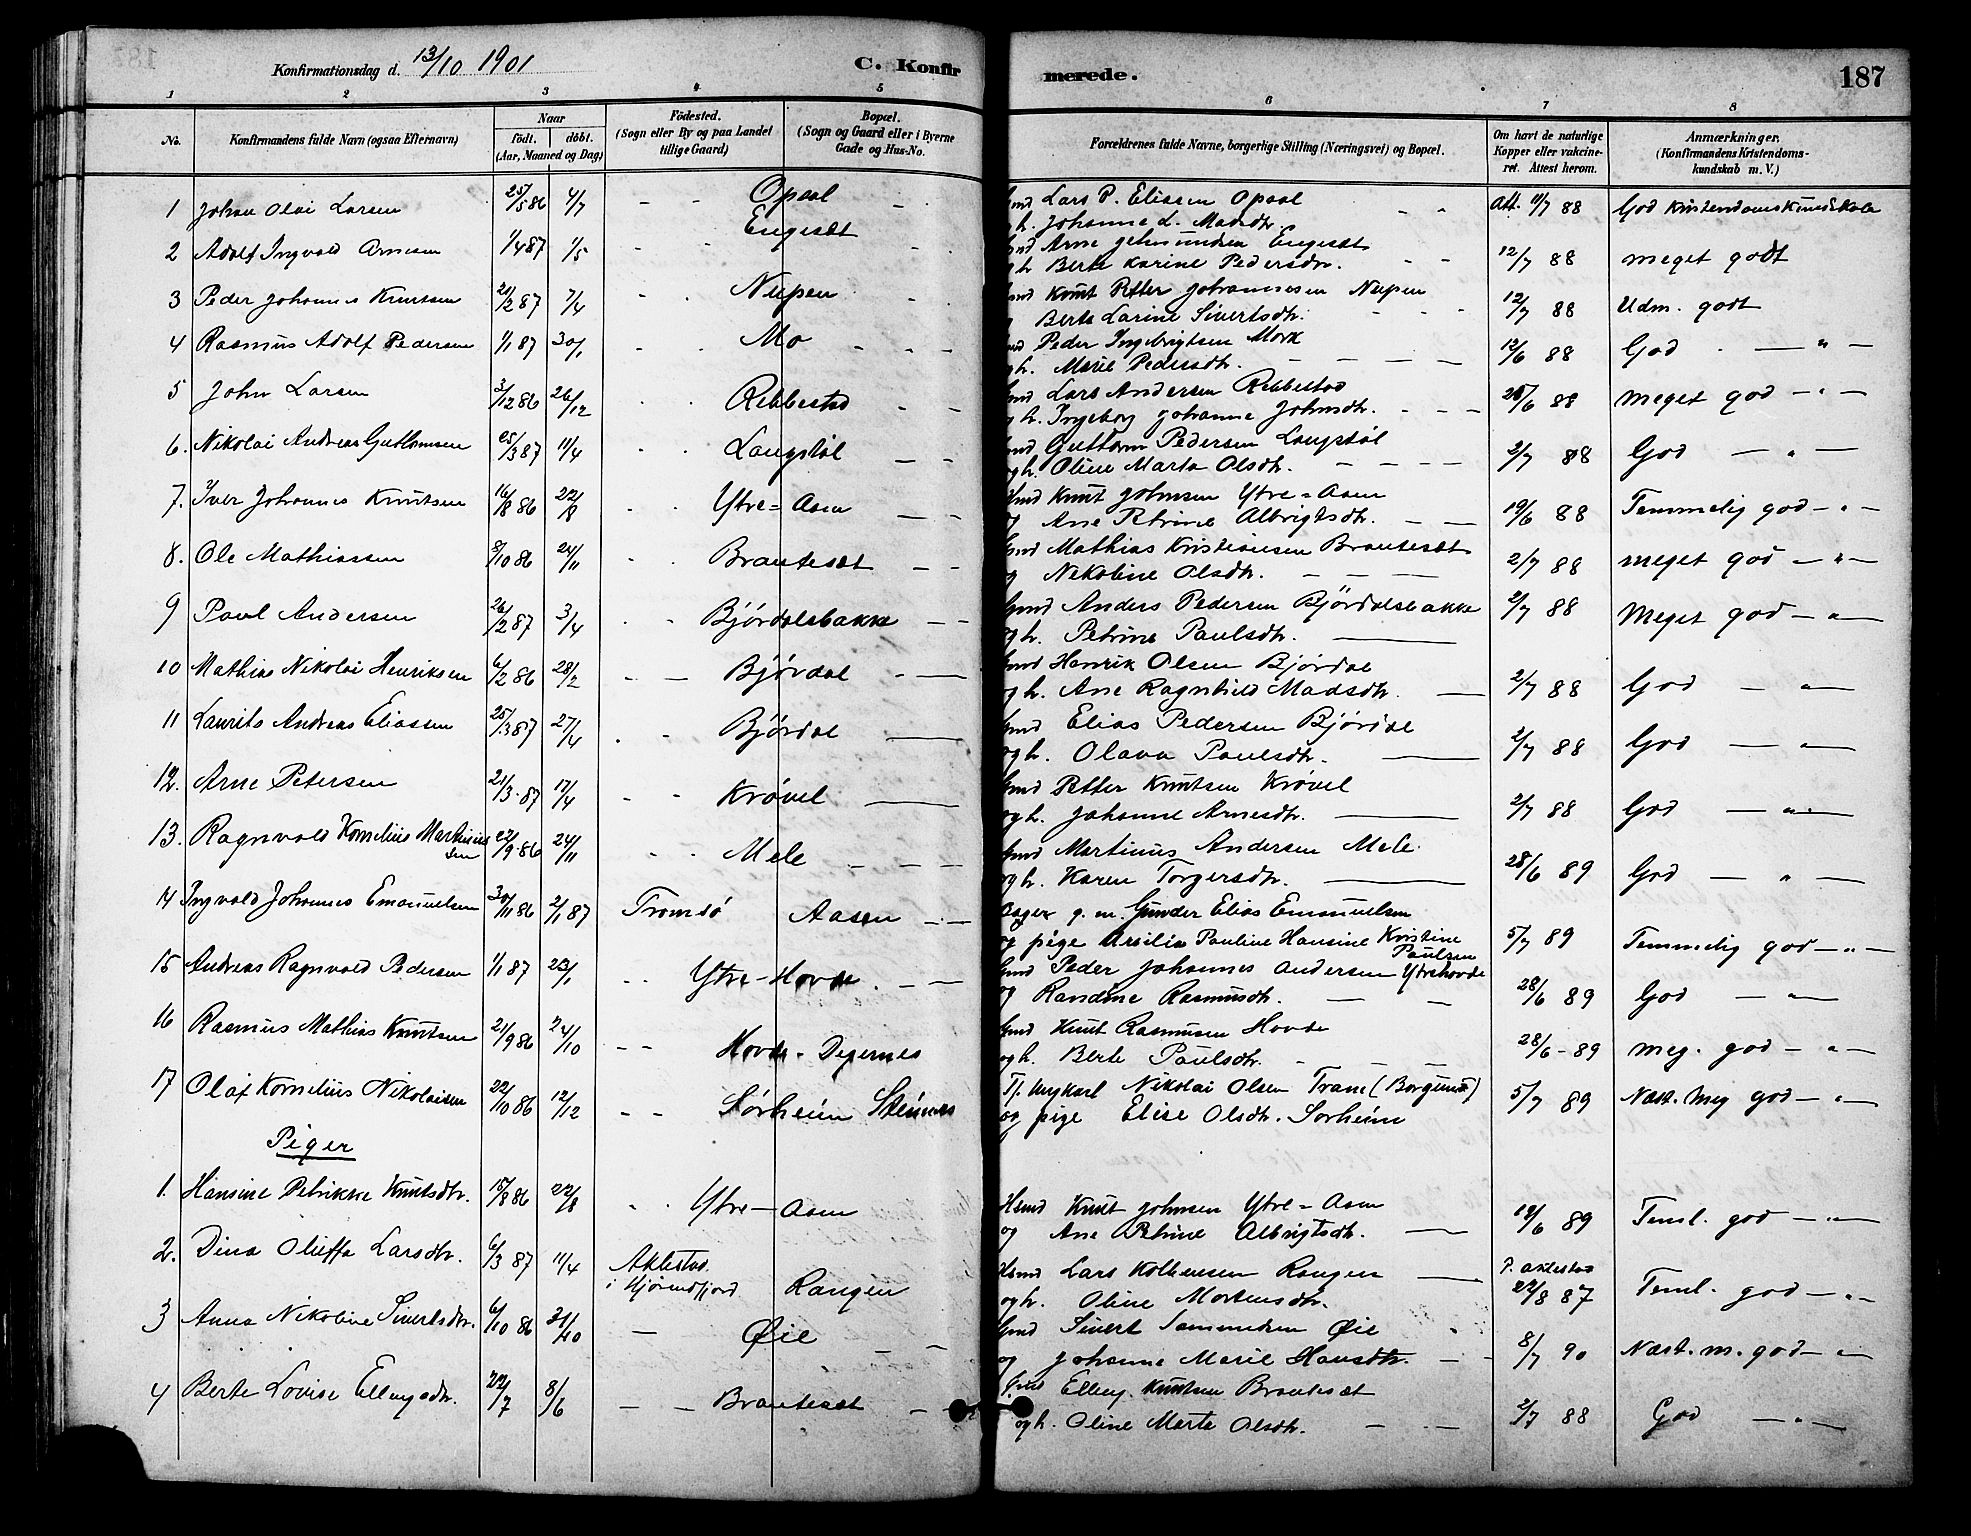 Konfirmationsdag d. 13/10 1901
C. Konfir merede. 187
1 2 3 4 5 6 7 8
No. Konfirmandens fulde Navn (ogsaa Efternavn) Naar födt. döbt. (Aar, Maaned og Dag) Födested. (Sogn eller By og paa Landet tillige Gaard) Bopæl. (Sogn og Gaard eller i Byerne Gade og Hus-No. Forældrenes fulde Navne, borgerlige Stilling (Næringsvei) og Bopæl. Om havt de naturlige Kopper eller vakcineret. Attest herom. Anmærkninger. (Konfirmandens Kristendomskundskab m. V.)
1 Johan Olai Larsen 25/5 86 4/7 - - Opsal Gmd Lars P. Eliasen Opsal
ogh. Johanne L. Madsdtr. Att. 11/7 88 God Kristendomskundskab
2 Adolf Ingvald Arnesen 1/4 87 1/5 Engeset Gmd Arne Jetmundsen Engeset
ogh. Berte Karine Pedersdtr. 12/7 88 meget godt
3 Peder Johannes Knutsen 21/2 87 7/4 Nupen Gmd Knut Petter Johannesen Nupen
og Berte Larine Sivertsdtr. 12/7 88 Udm. godt
4 Rasmus Adolf Pedersen 1/1 87 30/1 Mo Gmd Peder Ingebrigtsen Mork
ogh. Marie Pedersdtr. 12/6 88 God - " -
5 John Larsen 3/12 86 26/12 Rebbestad Gmd Lars Andersen Rebbestad
ogh. Ingeborg Johanne Johnsdtr. 28/6 88 meget god - " -
6. Nikolai Andreas Guttormsen 25/3 87 11/4 Langstöl Gmd Guttorm Pedersen Langstöl
ogh. Oline Marta Olsdtr. 2/7 88 God - " -
7. Iver Johannes Knutsen 16/8 86 22/8 Ytre = Aam Hmd Knut Johnsen Ytre = Aam
og Ane Petrine Albrigtsdtr. 19/6 88 Temmelig god - " -
8. Ole Mathiassen 8/10 86 21/11 Brauteset Gmd Mathias Kristiansen Brauteset
og Nekoline Olsdtr. 2/7 88 meget god - " -
9 Paul Andersen 26/2 87 3/4 Bjørdalsbakke Gmd Anders Pedersen Bjørdalsbakke
ogh. Petrine Paulsdtr. 2/7 88 Meget god - " -
10 Mathias Nikolai Henriksen 6/2 86 28/2 Bjørdal Gmd Henrik Olsen Bjørdal
ogh. Ane Ragnhild Madsdtr. 2/7 88 God - " -
11 Laurits Andreas Eliassen 25/3 87 27/4 Bjørdal Gmd Elias Pedersen Bjørdal
ogh. Olava Paulsdtr. 2/7 88 God - " -
12. Arne Petersen 21/3 87 17/4 Krøvel Gmd Petter Knutsen Krøvel
ogh. Johanne Arnesdtr. 2/7 88 God - " -
13. Ragnvald Kornelius Martinussen 22/9 86 24/11 Mele Gmd Martinus Andersen Mele
ogh. Karen Torgersdtr. 28/6 89 God - " -
14 Ingvald Johannes Emanuelsen 30/11 86 2/1 87 Tromsö Aasen Bager g. m. Gunder Elias Emanuelsen
og pige Arsilia Pauline Hansine Kristine Paulsen 5/7 89 Temmelig god - " -
15 Andreas Ragnvald Pedersen 1/1 87 23/1 Ytre-Hovde Gmd Peder Johannes Andersen Ytrehovde
og Randine Rasmusdtr. 28/6 89 God - " -
16 Rasmus Mathias Knutsen 21/9 86 24/10 Hovde-Digernes Gmd Knut Rasmusen Hovde
ogh. Berte Paulsdtr. 28/6-89 meg. god - " -
17 Olaf Kornelius Nikolaisen 22/10 86 12/12 Sørheim Steinnes Tj. Ungkarl Nikolai Olsen Tram (Borgund)
og pige Elise Olsdtr. Sorheim 5/7 89 Næst. meg god - " -
Piger
1. Hansine Petrikke Knutsdtr. 15/8 86 22/8 Ytre-Aam Hmd Knut Johnsen Ytre = Aam
og Ane Petrine Albrigtsdtr. 19/6 89 Teml. god - " -
2. Dina Oluffa Larsdtr. 6/3 87 11/4 Aklestad i Hjørundfjord Rangen Hmd Lars Kolbensen Rangen
ogh. Oline Mortensdtr. P. Aklestad 22/8 87 Teml. god - " -
3 Anna Nikoline Sivertsdtr. 6/10 86 31/10 Øie Gmd Sivert Samundsen Øie
og Johanne Marie Hansdtr. 8/7 90 Næst. m. god - " -
4 Berte Lovise Ellingsdtr. 22/7 8/6 Brauteset Gmd Elling Knutsen Brauteset
ogh. Oline Marte Olsdtr. 2/7 88 God - " -